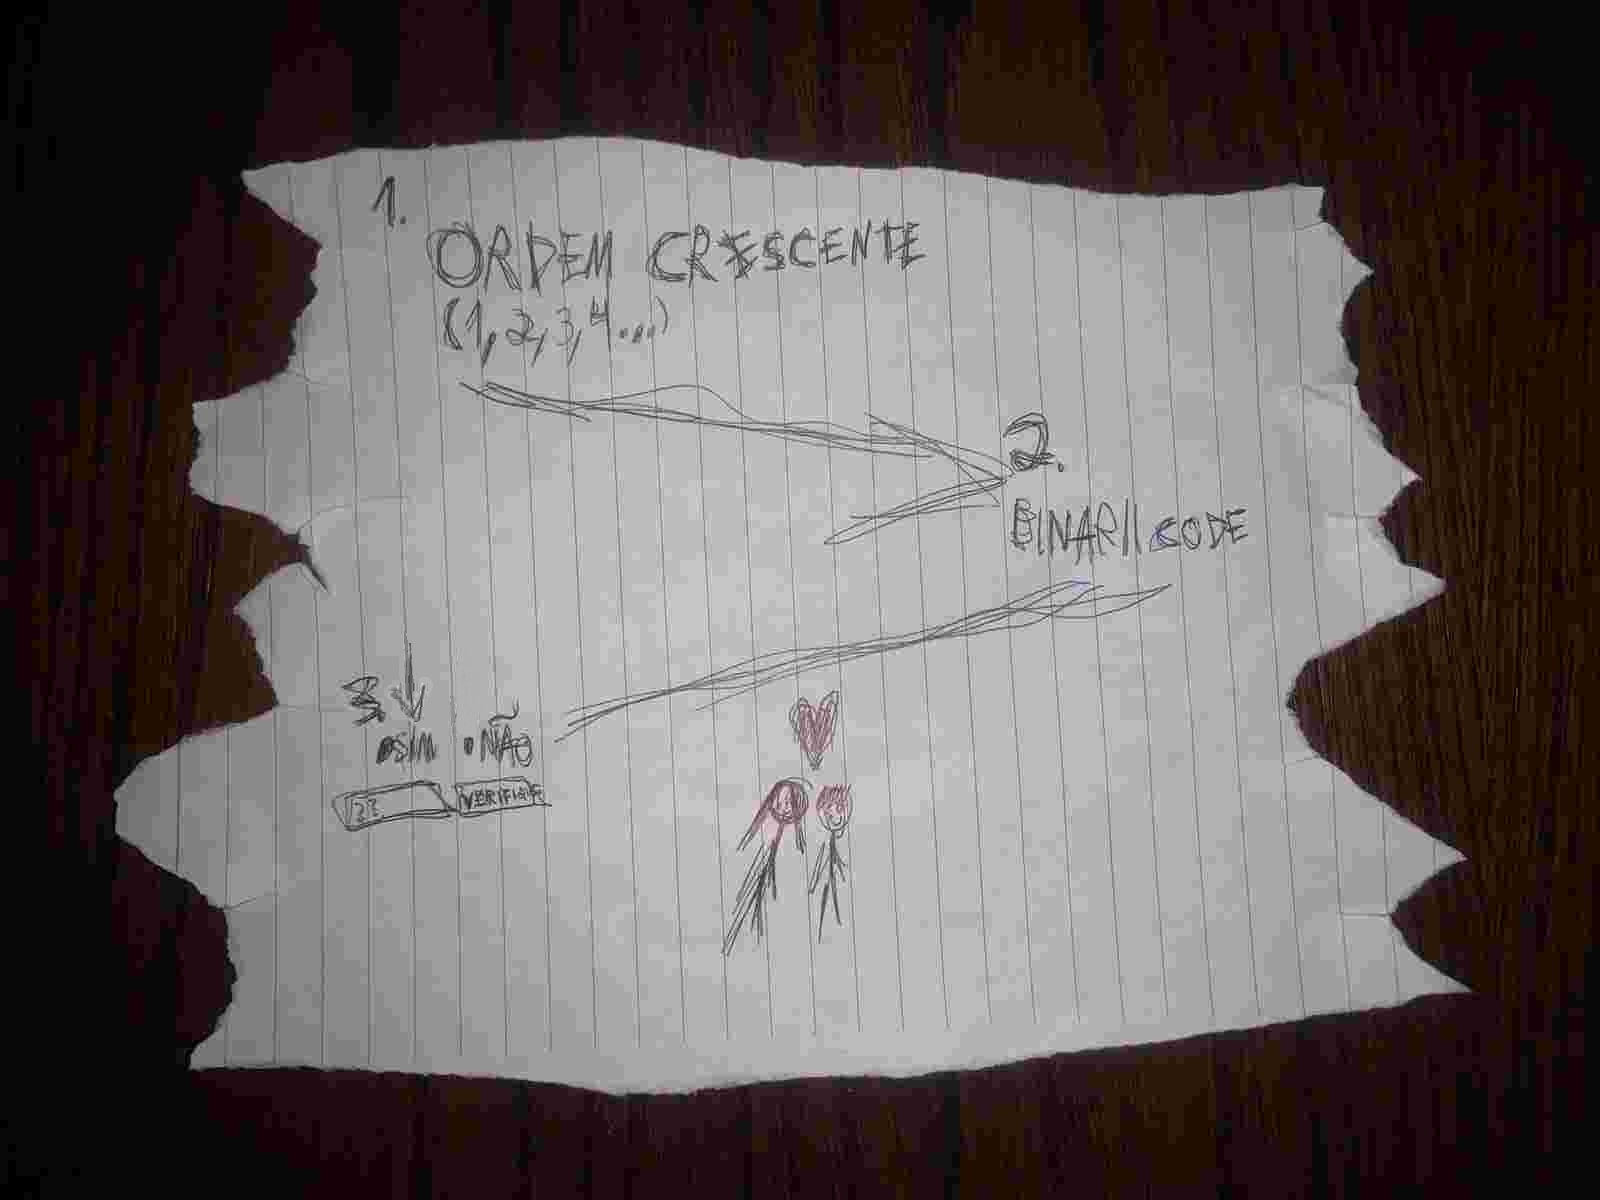 1.
ORDEM CRESCENTE
(1,2,3,4...)
2.
BINARII CODE
3.
•SIM •NÃO
VERIFIQUE